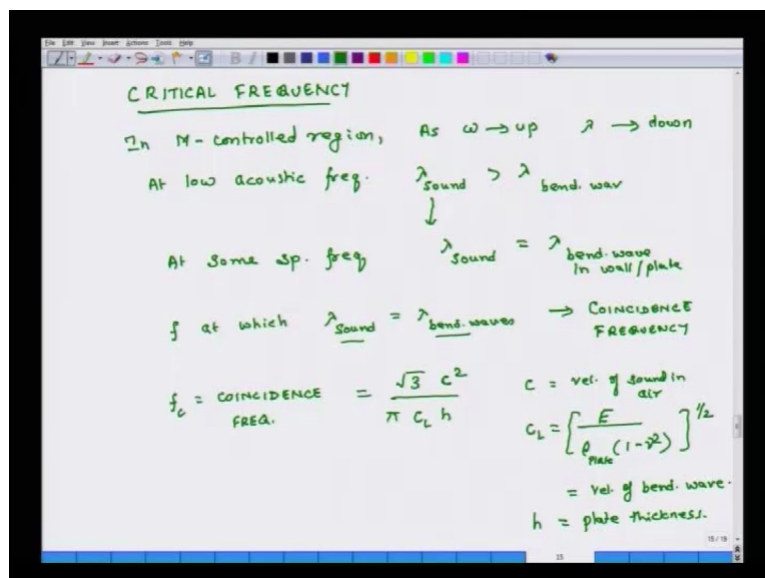 File Edit View Insert Actions Tools Help
CRITICAL FREQUENCY
In M-controlled region, As ω → up λ → down
At low acoustic freq. λ sound > λ bend. wav
↓
At some sp. freq λ sound = λ bend. wave in wall/plate
f at which λ sound = λ bend. waves → COINCIDENCE FREQUENCY
f_c = COINCIDENCE FREQ. = √3 c² / π C_L h
c = vel. of sound in air
C_L = [E / ρ_plate (1-ν²)]^1/2
= vel. of bend. wave.
h = plate thickness.
15/18
15